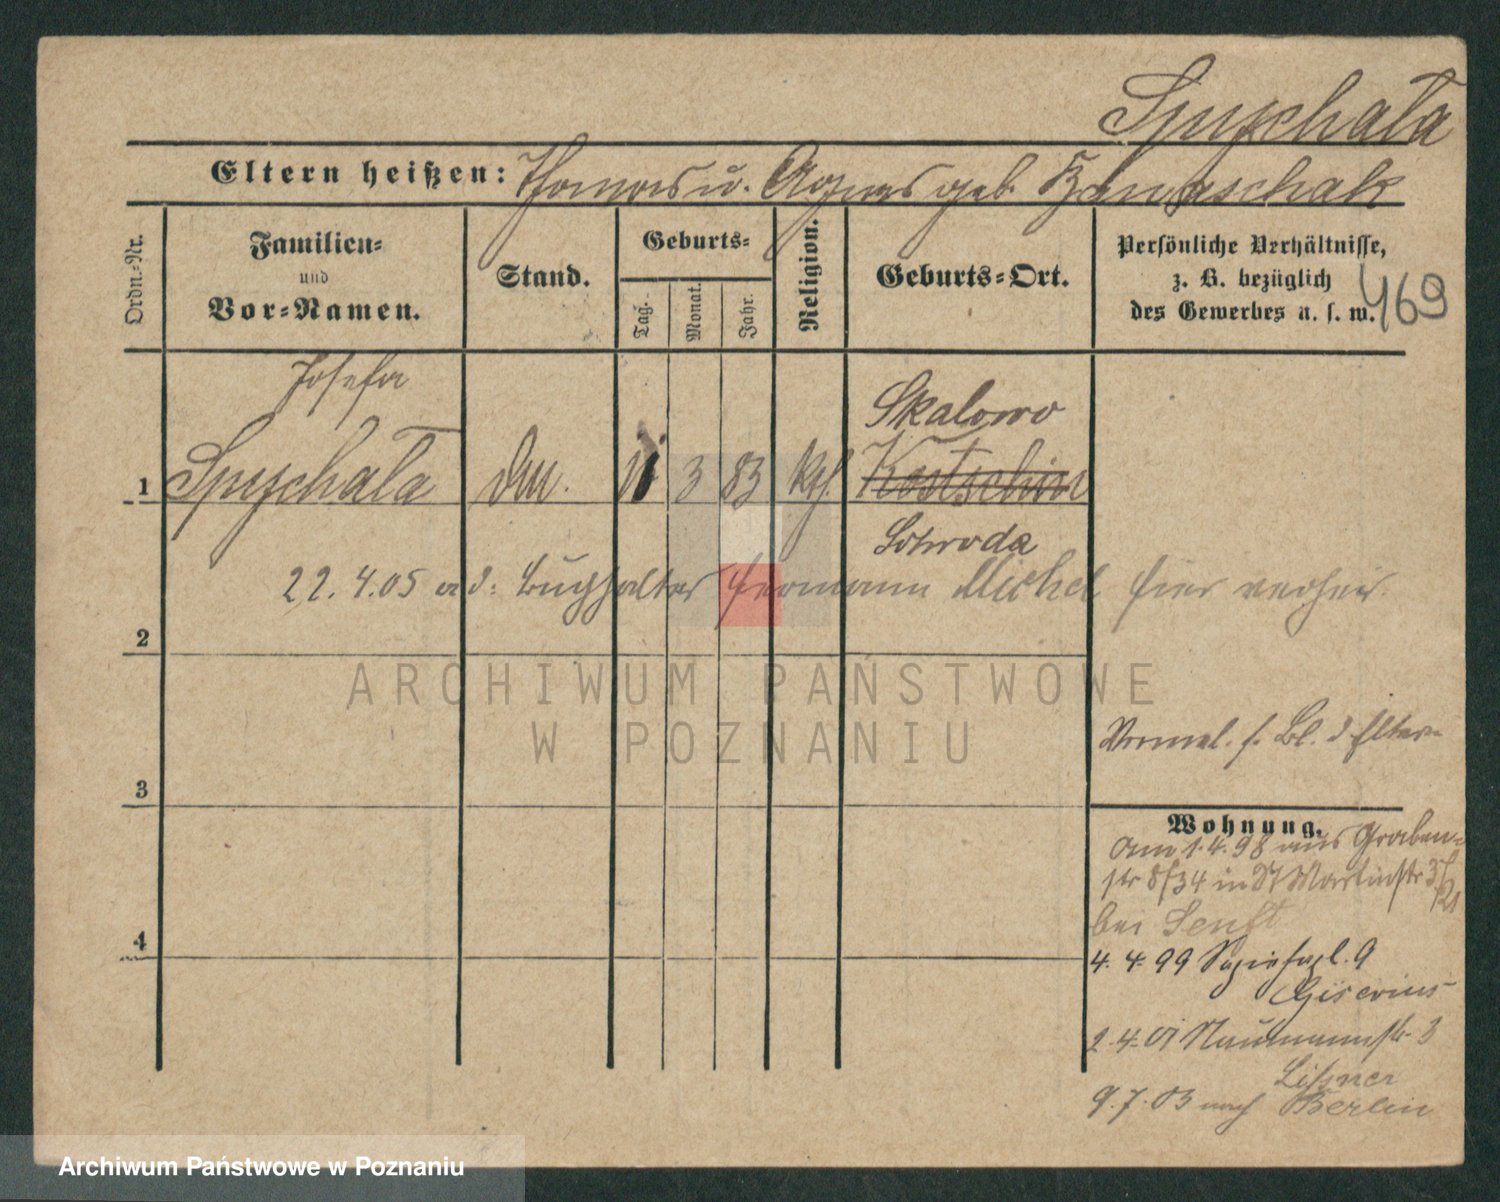 Spychała
Eltern heißen: Thomas u. Agnes geb.
Ordn.-Nr.
Familien=
und
Vor=Namen.
Stand.
Geburts=
Tag.
Monat.
Jahr.
Religion.
Geburts=Ort.
Persönliche Verhältnisse,
z. B. bezüglich
des Gewerbes u. s. w.
469
Josefa
Skalowo
1 Spychała 3 83 Kostschin
Schroda
22.4.05 a d: Buchhalter Hermann Michel hier verheir.
2
ARCHIWUM PAŃSTWOWE
W POZNANIU
Bl. d. Eltern
3
Wohnung.
Am 1.4.98 aus Graben=
str 8/34 in St Martinstr
bei Senft
4
4.4.99 Sapiehapl. 9
Giserius
2.4.01 Naumannstr. 3
Lissner
9.7.03 nach Berlin
Archiwum Państwowe w Poznaniu